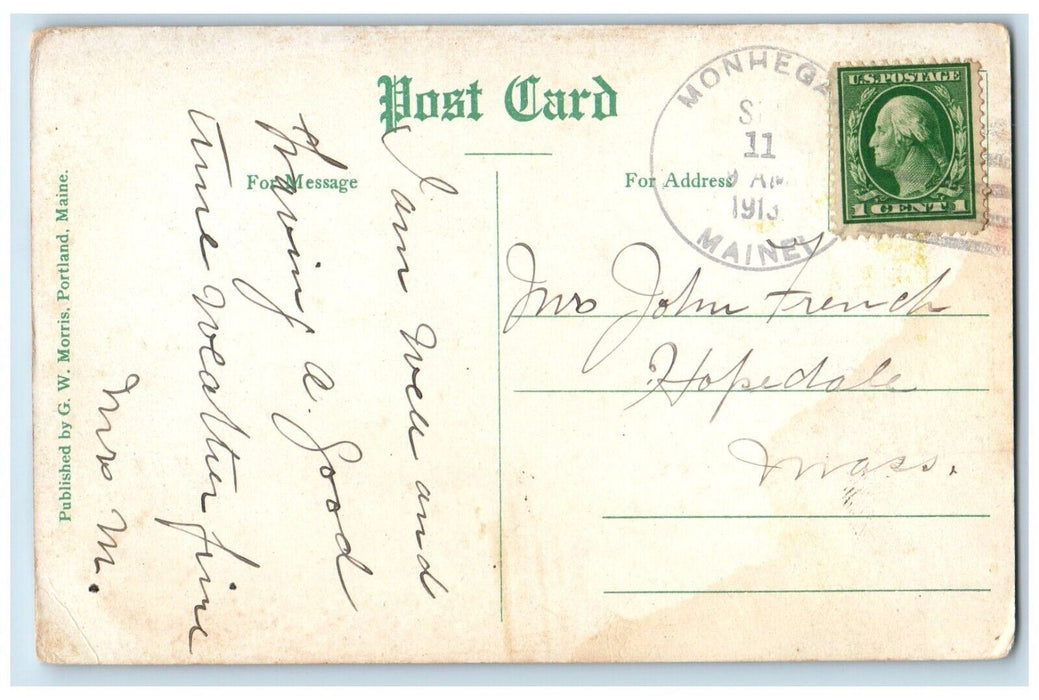 Post Card
For Message
For Address
Published by G. W. Morris, Portland, Maine.
MONHEGA
11
AM
191
MAINE
U.S. POSTAGE
1 CENT 1
I am well and
having a. good
time weather fine
Mrs M.
Mrs John French
Hopedale
Mass.